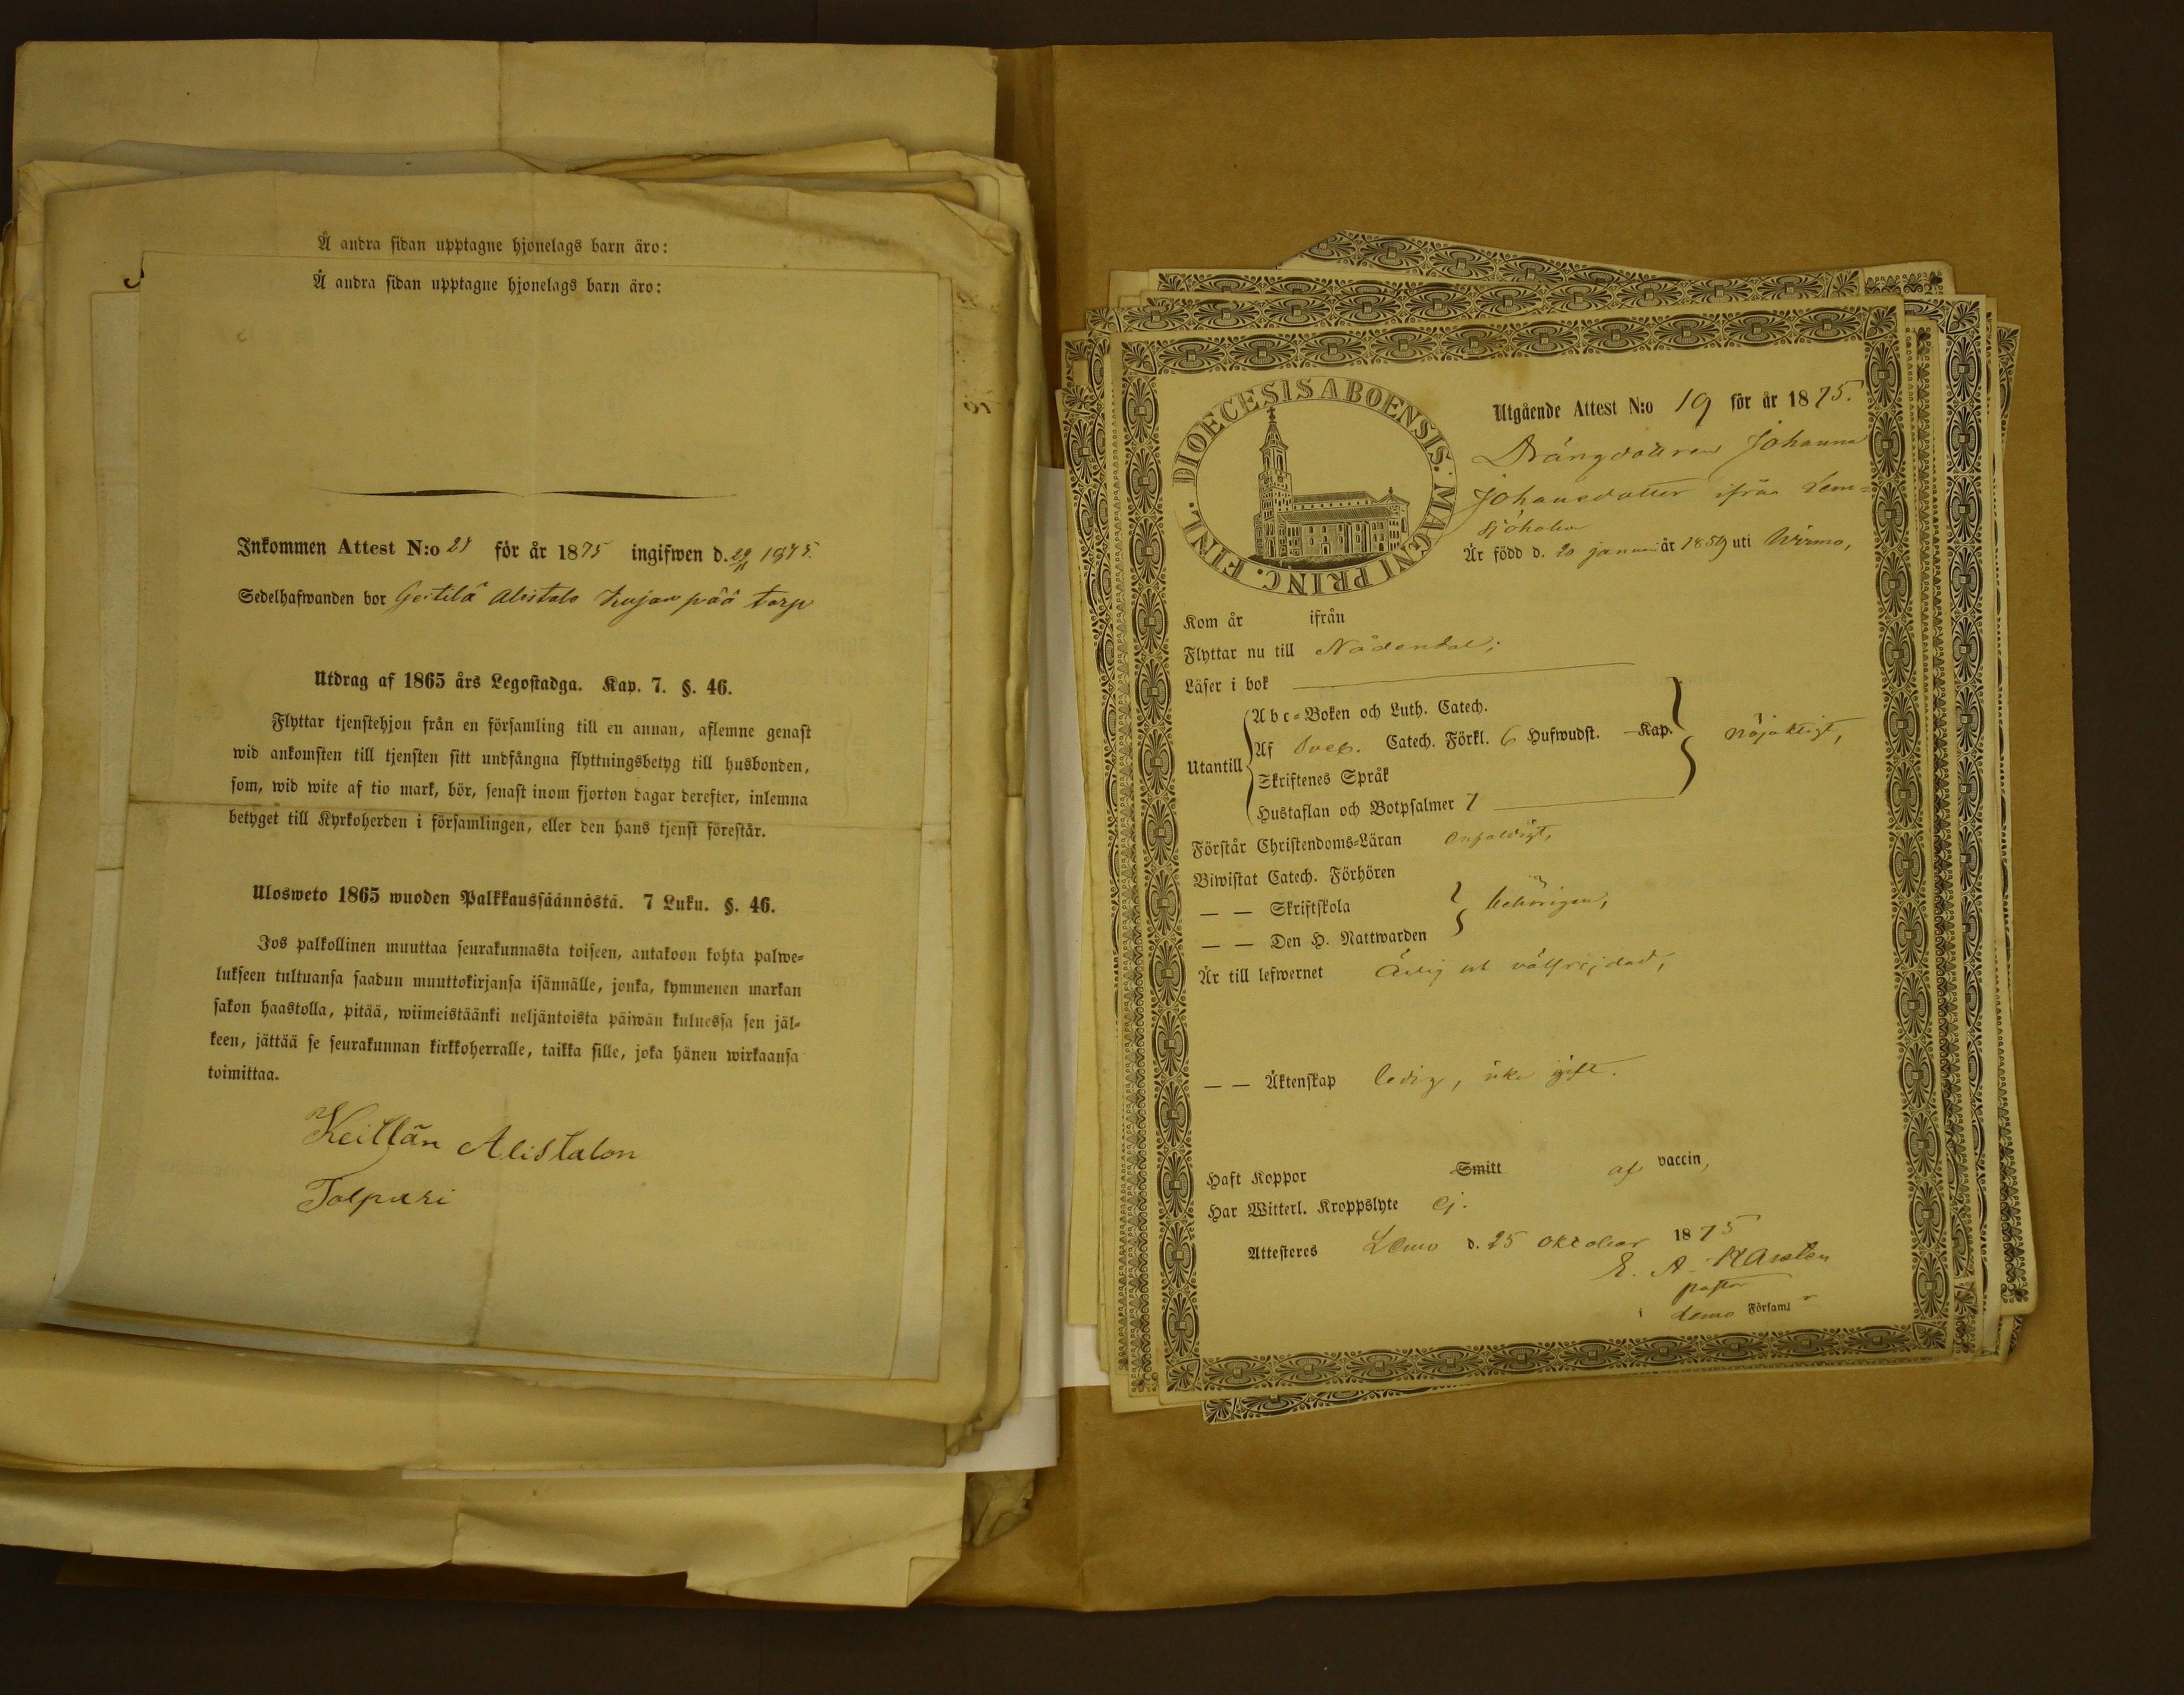 Å andra sidan upptagne hjonelags barn äro:
Å andra sidan upptagne hjonelags barn äro:
Inkommen Attest N:o 27 för år 1875 ingifwen d. 29/11 1975.
Sedelhafwanden bor Alistalo Kujanpää torp
Utdrag af 1865 års Legostadga. Kap. 7. §. 46.
Flyttar tjenstehjon från en församling till en annan, aflemne genast
wid ankomsten till tjensten sitt undfångna flyttningsbetyg till husbonden,
som, wid wite af tio mark, bör, senast inom fjorton dagar derefter, inlemna
betyget till Kyrkoherden i församlingen, eller den hans tjenst förestår.
Ulosweto 1865 wuoden Palkkaussäännöstä. 7 Luku. §. 46.
Jos palkollinen muuttaa seurakunnasta toiseen, antakoon kohta palwe-
lukseen tultuansa saadun muuttokirjansa isännälle, jonka, kymmenen markan
sakon haastolla, pitää, wiimeistäänki neljäntoista päiwän kuluessa sen jäl-
keen, jättää se seurakunnan kirkkoherralle, taikka sille, joka hänen wirkaansa
toimittaa.
Keitlän Alistalon
Tolpari
DIOECESIS ABOENSIS. MAGNI PRINC. FINL.
Utgående Attest N:o 19 för år 1875.
Drängdottren Johanna
Johansdotter ifrån Lem-
Är född d. 20 januari år 1859 uti Wirmo,
Kom år ifrån
Flyttar nu till Nådendal;
Läser i bok
Utantill
Abc-Boken och Luth. Catech.
Af Sveb. Catech. Förkl. 6 Hufwudst. Kap.
Skriftenes Språk
Hustaflan och Botpsalmer 7
nöjaktigt,
Förstår Christendoms-Läran enfaldigt,
Biwistat Catech. Förhören
— — Skriftskola
— — Den H. Nattwarden
behörigen,
Är till lefwernet Ärlig och välfrejdad,
— — Äktenskap ledig, icke gift.
Haft Koppor Smitt af vaccin,
Har Witterl. Kroppslyte Ej.
Attesteres Lemo d. 25 oktober 1875
E. A. Karsten
pastor
i Lemo Församl